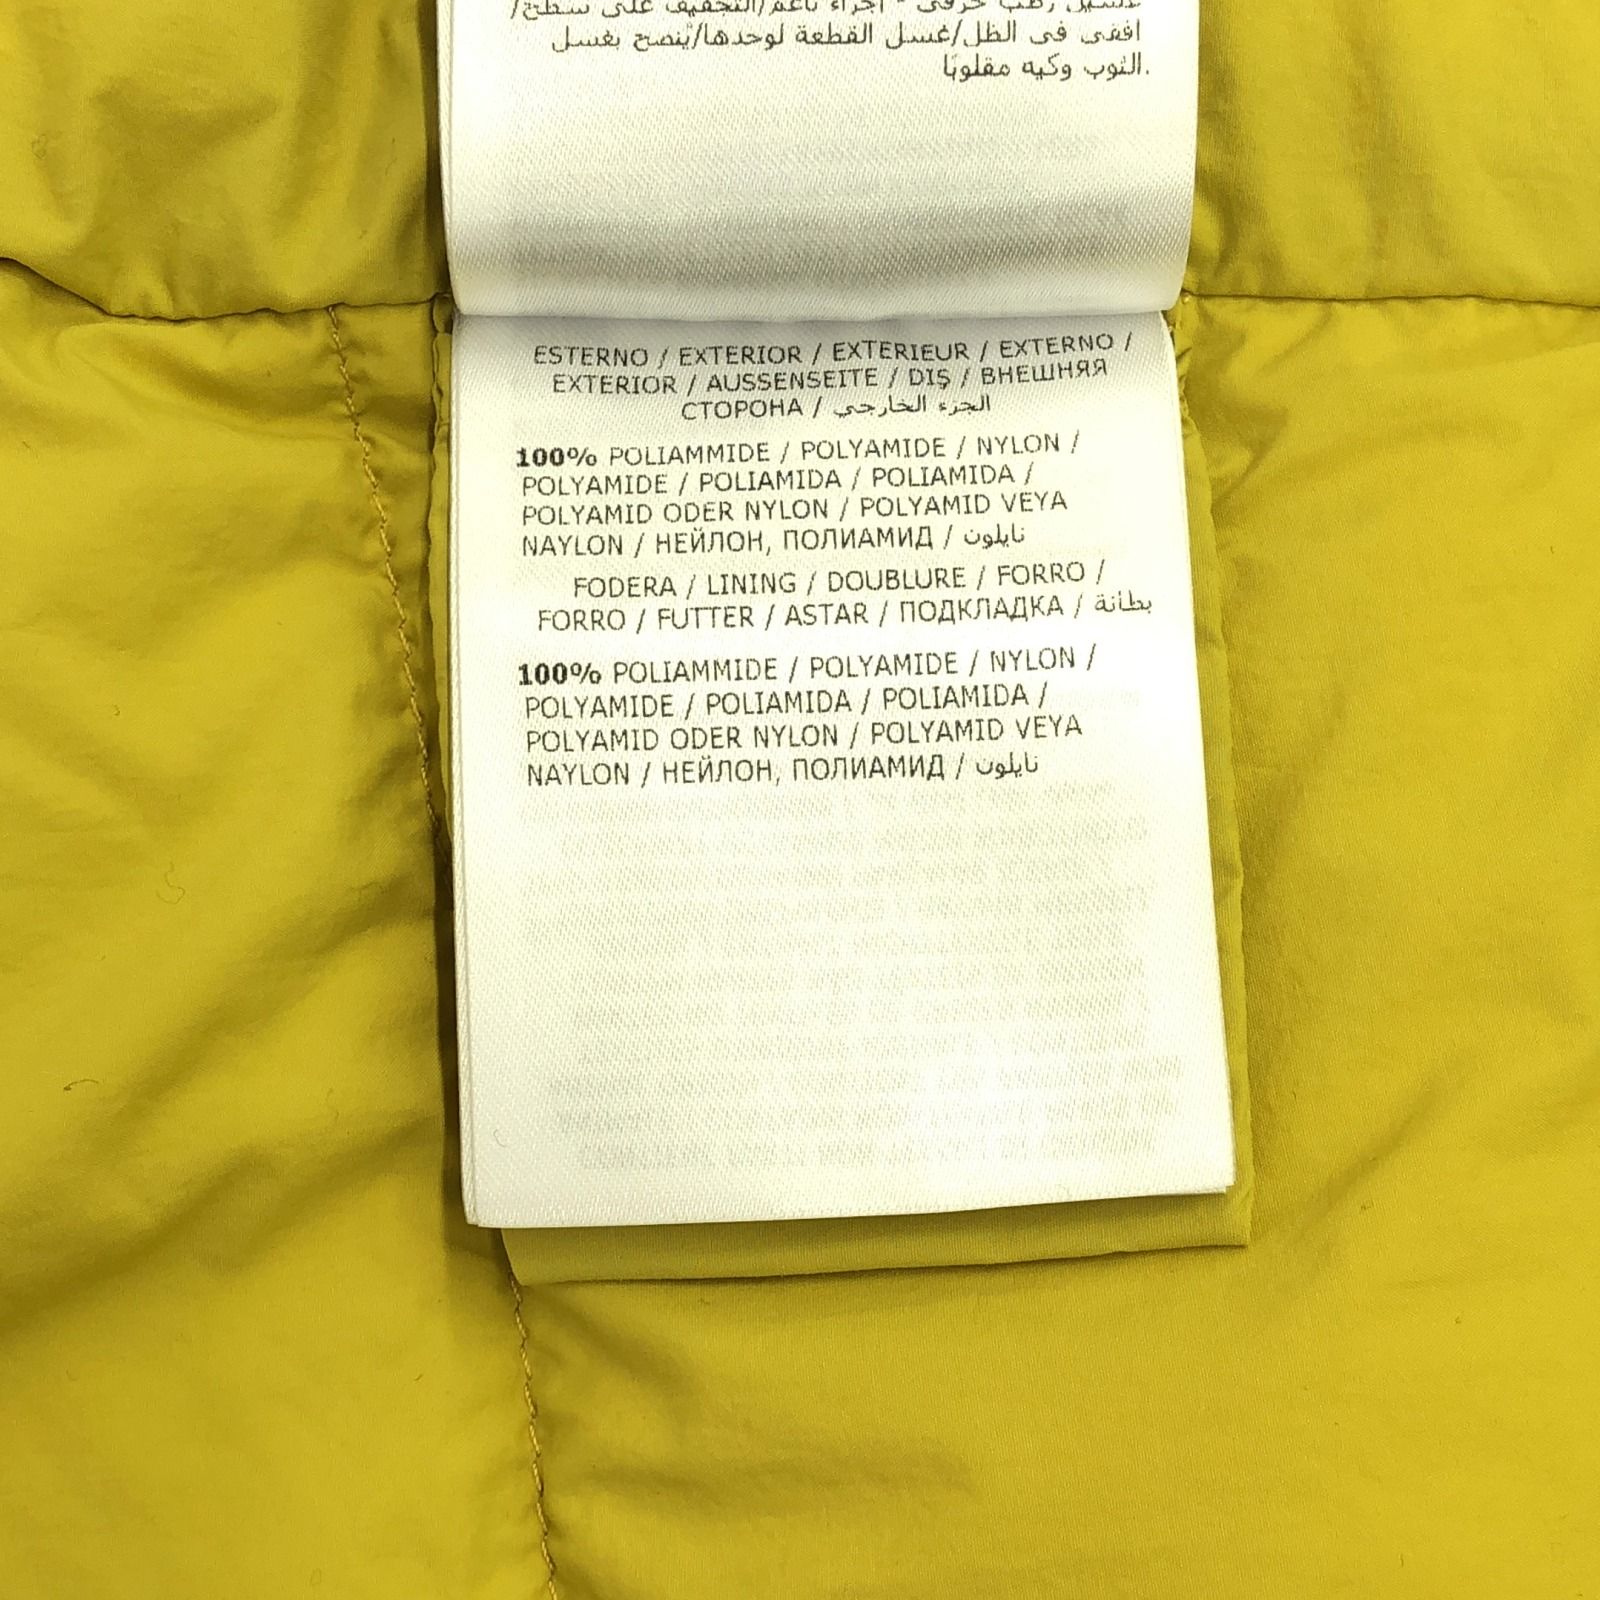 لغسيل رطب حرفى - اجراء ناعم/التجفيف على سطح/
افقى فى الظل/غسل القطعة لوحدها/يُنصح بغسل
الثوب وكيه مقلوبًا.
ESTERNO / EXTERIOR / EXTERIEUR / EXTERNO /
EXTERIOR / AUSSENSEITE / DIŞ / ВНЕШНЯЯ
СТОРОНА / الجزء الخارجي
100% POLIAMMIDE / POLYAMIDE / NYLON /
POLYAMIDE / POLIAMIDA / POLIAMIDA /
POLYAMID ODER NYLON / POLYAMID VEYA
NAYLON / НЕЙЛОН, ПОЛИАМИД / نايلون
FODERA / LINING / DOUBLURE / FORRO /
FORRO / FUTTER / ASTAR / ПОДКЛАДКА / بطانة
100% POLIAMMIDE / POLYAMIDE / NYLON /
POLYAMIDE / POLIAMIDA / POLIAMIDA /
POLYAMID ODER NYLON / POLYAMID VEYA
NAYLON / НЕЙЛОН, ПОЛИАМИД / نايلون